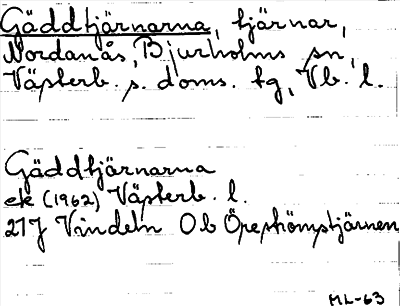 Gäddtjärnarna, tjärnar,
Nordanås, Bjurholms sn,
Västerb. s. doms. tg, Vb. l.
Gäddtjärnarna
ek (1962) Västerb. l.
21J Vindeln Ob Öreströmstjärnen
ML-63